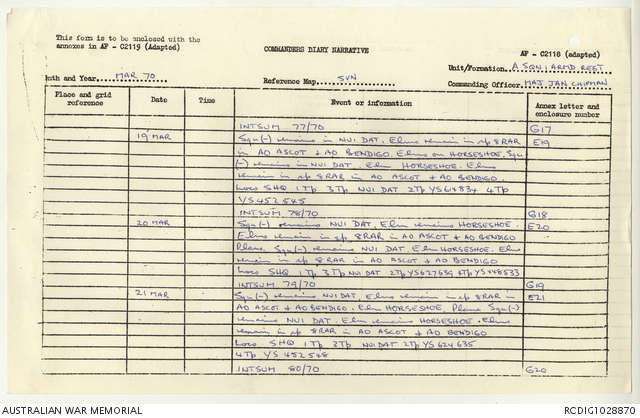 This form is to be enclosed with the
annexes in AF - C2119 (Adapted)
COMMANDERS DIARY NARRATIVE
AF - C2118 (adapted)
Unit/Formation A SQN 1 ARMD REGT
Month and Year MAR 70
Reference Map SVN
Commanding Officer MAJ JAN CHIPMAN
Place and grid reference Date Time Event or information Annex letter and enclosure number
INTSUM 77/70 G17
19 MAR Sqn(-) remains in NUI DAT. Elms remain in sp 8RAR E19
in AO ASCOT + AO BENDIGO. Elms on HORSESHOE. Sqn
(-) remains in NUI DAT. Elm HORSESHOE. Elms
remain in sp 8RAR in AO ASCOT + AO BENDIGO.
Locs SHQ 1Tp 3Tp NUI DAT 2Tp YS 614834 4Tp
YS 452545
INTSUM 78/70 G18
20 MAR Sqn(-) remains NUI DAT, Elm remains HORSESHOE. E20
Elms remain in sp 8RAR in AO ASCOT + AO BENDIGO
Plans. Sqn(-) remains NUI DAT. Elm HORSESHOE. Elms
remain in sp 8RAR in AO ASCOT + AO BENDIGO
Locs SHQ 1Tp 3Tp NUI DAT 2Tp YS 627659 4Tp YS 448533
INTSUM 79/70 G19
21 MAR Sqn(-) remains NUI DAT, Elms remain in sp 8RAR in E21
AO ASCOT + AO BENDIGO. Elm HORSESHOE. Plans Sqn(-)
remains NUI DAT. Elm remains HORSESHOE. Elms
remain in sp 8RAR in AO ASCOT + AO BENDIGO
Locs SHQ 1Tp 3Tp NUI DAT 2Tp YS 624635
4Tp YS 452548
INTSUM 80/70 G20
AUSTRALIAN WAR MEMORIAL
RCDIG1028870